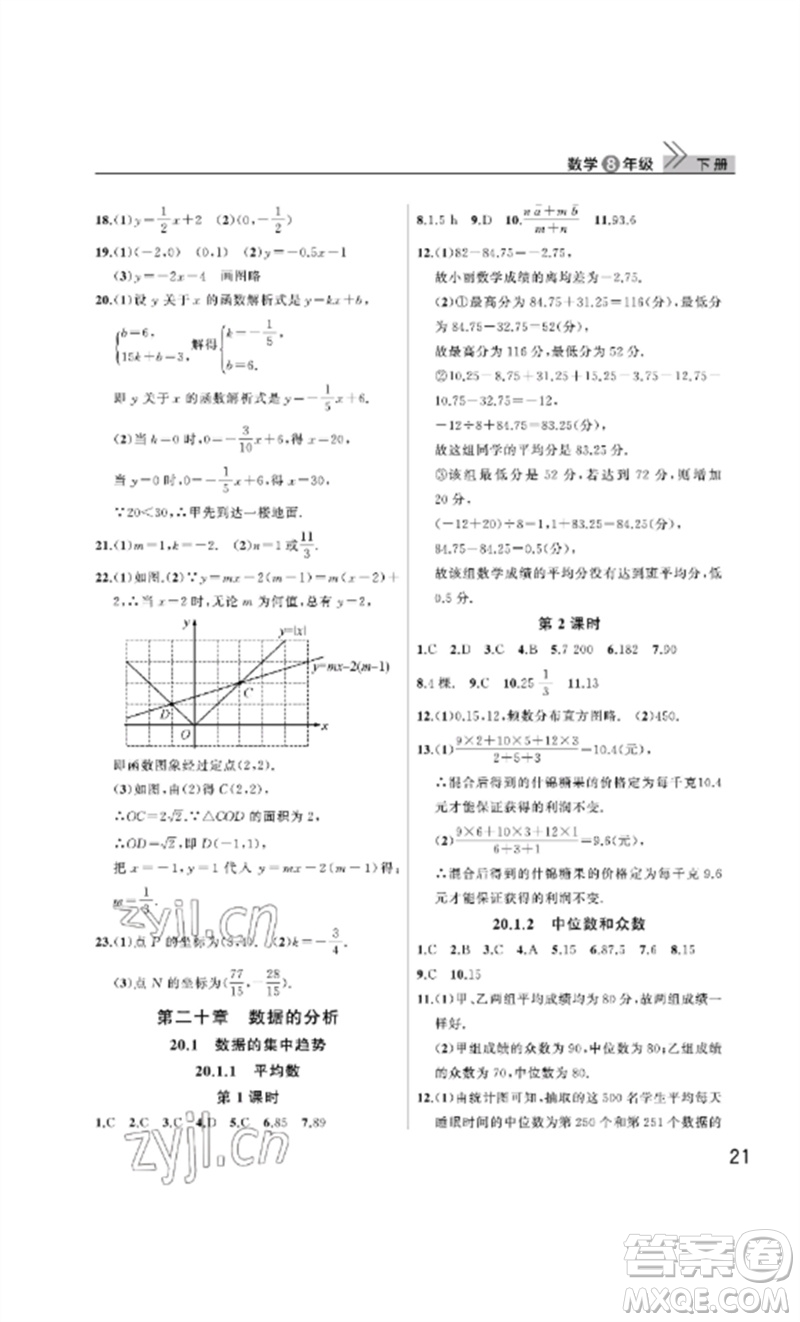 数学 8 年级 下册
18.(1)y=1/2x+2 (2)(0,-1/2)
19.(1)(-2,0) (0,1) (2)y=-0.5x-1
(3)y=-2x-4 画图略
20.(1)设 y 关于 x 的函数解析式是 y=kx+b,
{b=6, 15k+b=3, 解得{k=-1/5, b=6.
即 y 关于 x 的函数解析式是 y=-1/5x+6.
(2)当 h=0 时,0=-3/10x+6,得 x=20,
当 y=0 时,0=-1/5x+6,得 x=30,
∵20<30,∴甲先到达一楼地面.
21.(1)m=1,k=-2. (2)n=1 或11/3.
22.(1)如图.(2)∵y=mx-2(m-1)=m(x-2)+
2,∴当 x=2时,无论 m 为何值,总有 y=2,
y
y=|x|
y=mx-2(m-1)
D
C
O
x
即函数图象经过定点(2,2).
(3)如图,由(2)得 C(2,2),
∴OC=2√2.∵△COD 的面积为2,
∴OD=√2,即 D(-1,1),
把 x=-1,y=1 代入 y=mx-2(m-1)得,
m=1/3.
23.(1)点 P 的坐标为 (2)k=-3/4.
(3)点 N 的坐标为(77/15,-28/15).
第二十章 数据的分析
20.1 数据的集中趋势
20.1.1 平均数
第 1 课时
1.C 2.C 3.C 4.D 5.C 6.85 7.89
8.1.5 h 9.D 10.(na+mb)/(m+n) 11.93.6
12.(1)82-84.75=-2.75,
故小丽数学成绩的离均差为-2.75.
(2)①最高分为 84.75+31.25=116(分),
最低分为 84.75-32.75=52(分),
故最高分为 116 分,最低分为 52 分.
②10.25-8.75+31.25+15.25-3.75-
10.75-32.75=-12,
-12÷8+84.75=83.25(分),
故这组同学的平均分为 83.25(分).
③该组最低分是 52 分,若达到 72 分,则增加
20 分,
(-12+20)÷8=1,83.25+1=84.25(分),
84.75-84.25=0.5(分),
故该组数学成绩的平均分没有达到班平均分,低
0.5 分.
第 2 课时
1.C 2.D 3.C 4.B 5.7 200 6.182 7.90
8.4 棵. 9.C 10.25 1/3 11.13
12.(1)0.15,12,频数分布直方图略. (2)450.
13.(1)(9×2+10×5+12×3)/(2+5+3)=10.4(元),
∴混合后得到的什锦糖果的价格定为每千克10.4
元才能保证获得的利润不变.
(2)(9×6+10×3+12×1)/(6+3+1)=9.6(元),
∴混合后得到的什锦糖果的价格定为每千克 9.6
元才能保证获得的利润不变.
20.1.2 中位数和众数
1.C 2.B 3.C 4.A 5.15 6.87.5 7.6 8.15
9.C 10.15
11.(1)甲、乙两组平均成绩均为 80 分,故两组成绩一
样好.
(2)甲组成绩的众数为 90,中位数为 80;乙组成绩
的众数为 70,中位数为 80.
12.(1)由统计图可知,抽查的这 500 名学生平均每天
睡眠时间的中位数为第 250 个和第 251 个数据的
21
zyjl.cn
zyjl.cn
答案卷
MXQE.COM